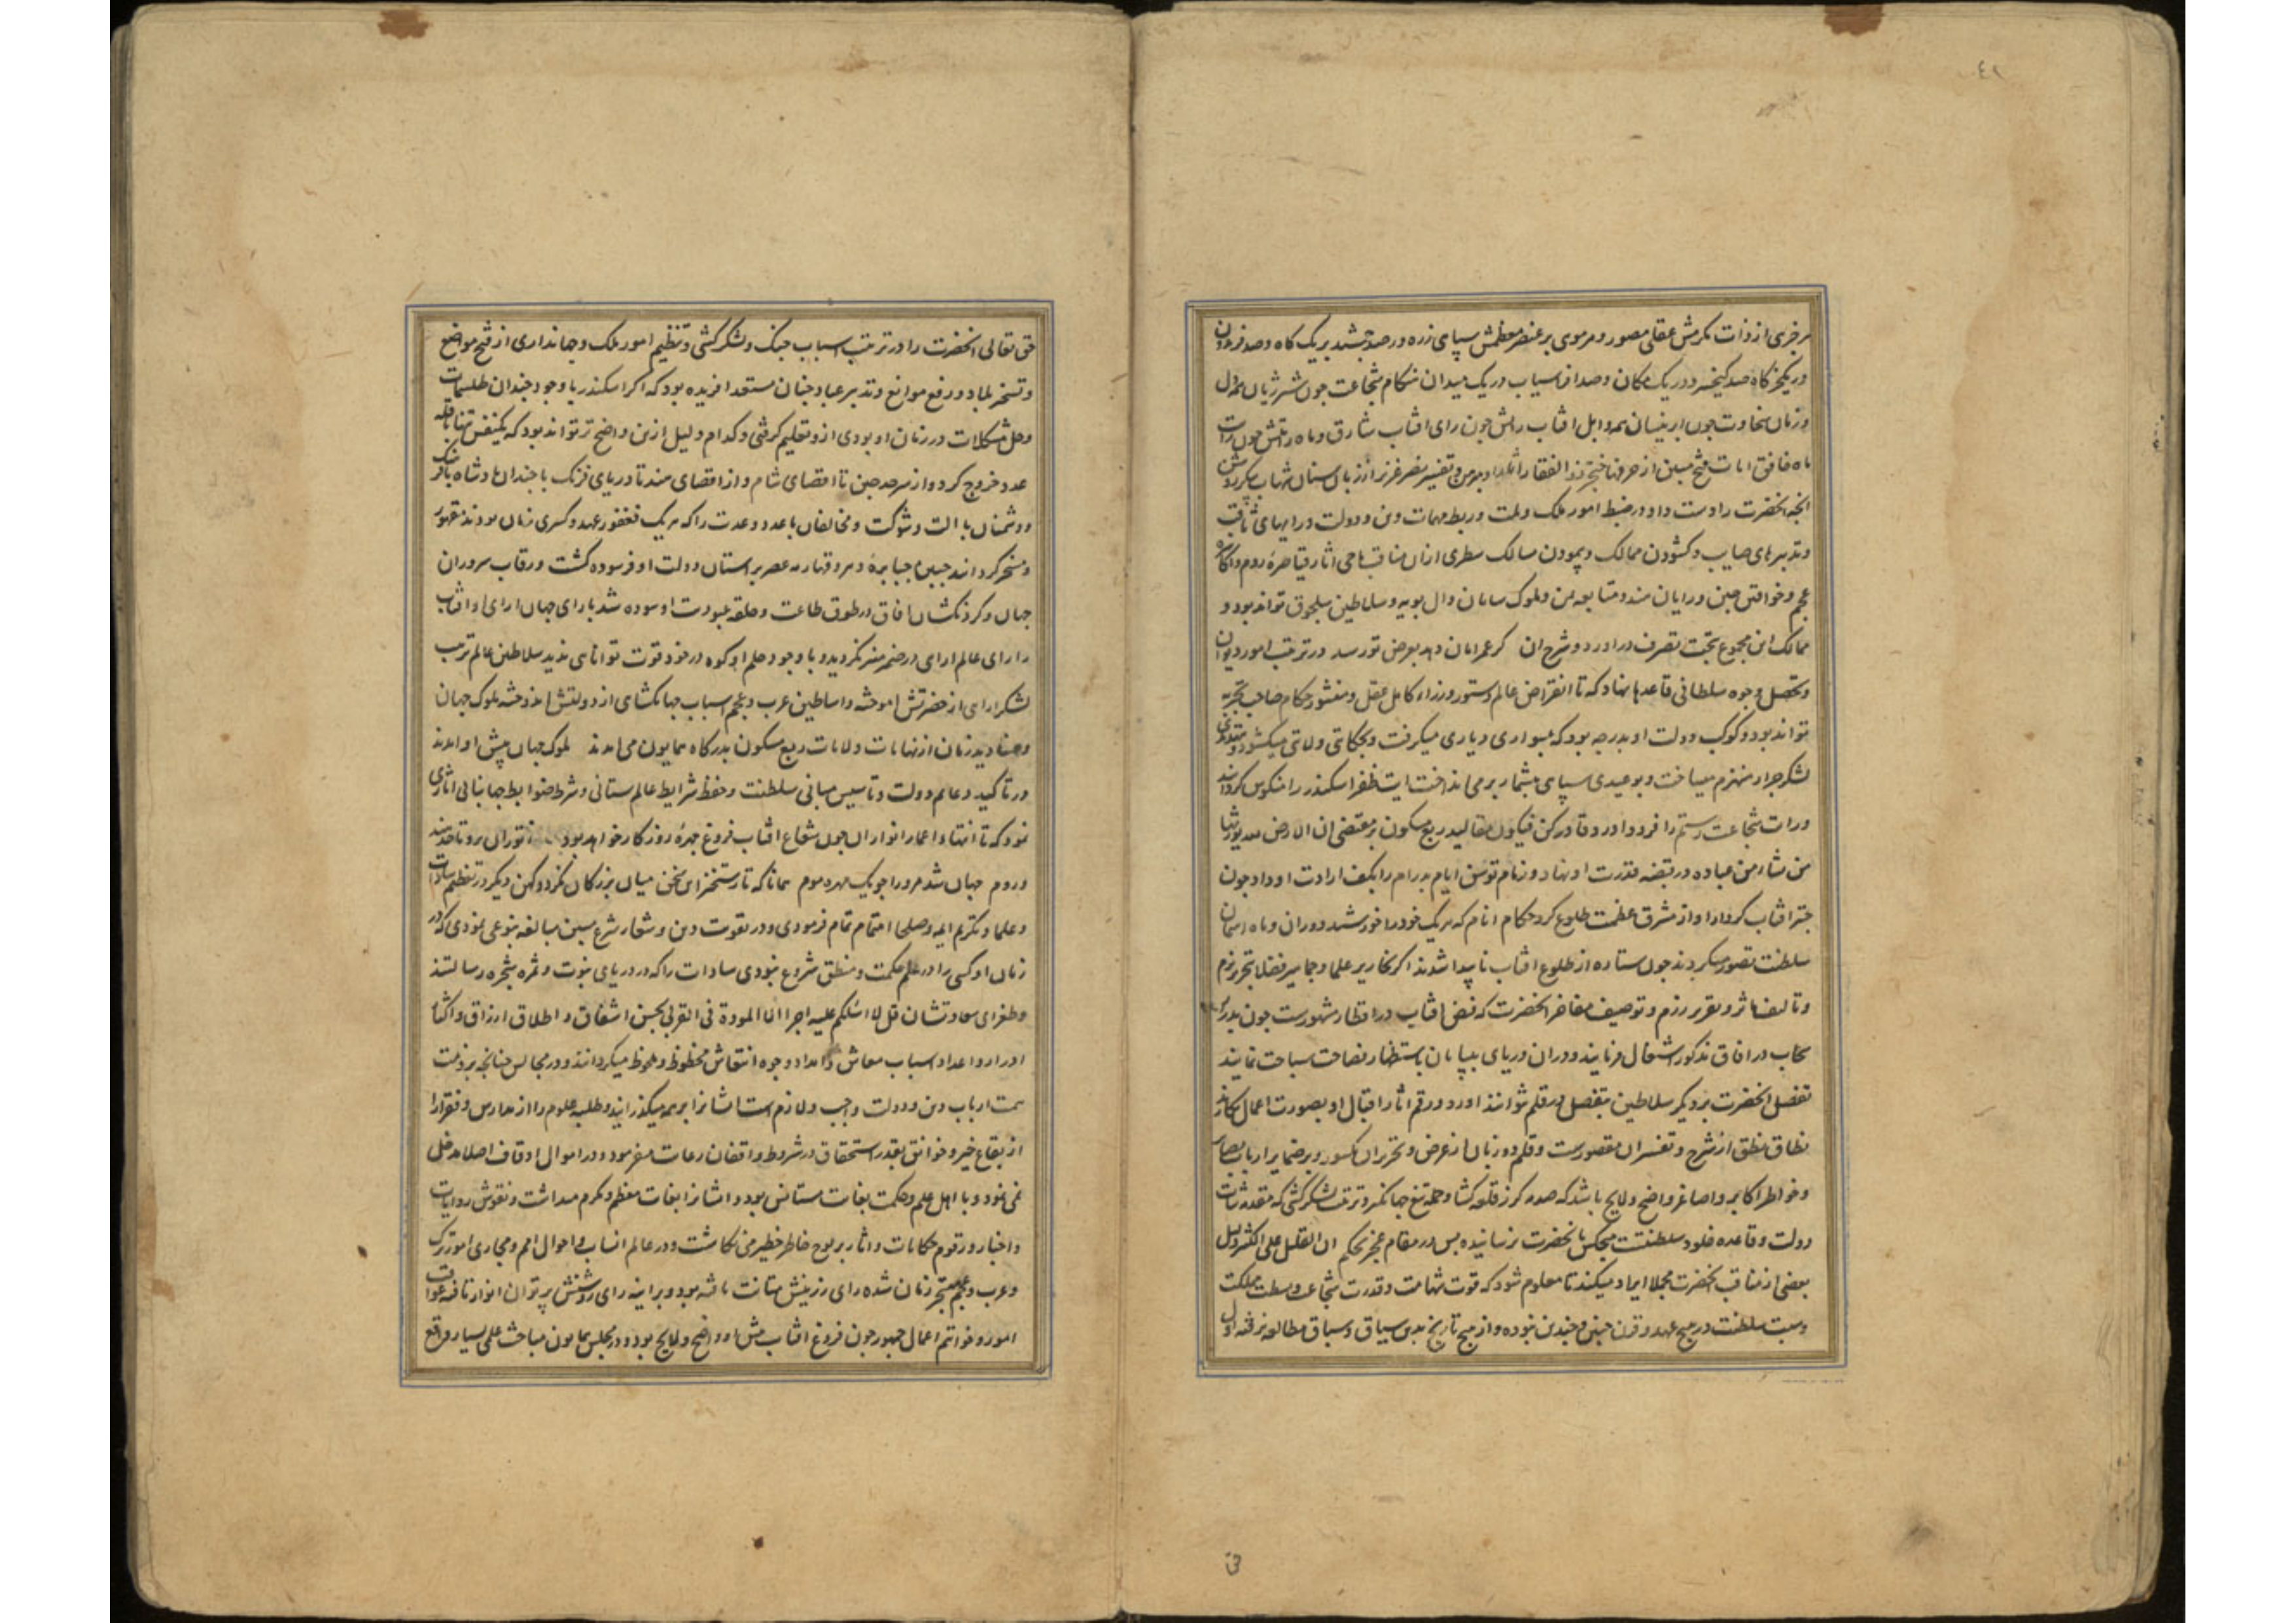 ٤٢
هر جزی از ذات مکرمش عقلی مصور و هر موی بر عنصر معظمش سپاهی زره ور صد جمشید بر یک گاه و صد فریدون
در یکجرگاه صد کیخسرو در یک مکان و صد افراسیاب در یک میدان هنگام شجاعت چون شیر ژیان
و زمان سخاوت چون ابر نیسان افتاب رایش چون رای افتاب شارق و ماه رایتش چون رایت
ماه خافق ایات فتح مبین از حرف خنجر ذو الفقار و تفسیر نصر عزیز از زبان سنان شهاب
انچه انحضرت را دست داد در ضبط امور ملک و ملت و ربط مهمات دین و دولت و رایهای ثاقب
و تدبیرهای صایب و کشودن ممالک و پیمودن مسالک سطری از ان مناقب ماحی اثار قیاصره روم و اکاسره
عجم و خواقین چین و رایان هند و تبابعه یمن و ملوک سامان و ال بویه و سلاطین سلجوق تواند بود و
ممالک این مجموع بتحت تصرف در اورد و شرح ان گر عمر امان دهد بعرض تو رسد در ترتیب امور دیوان
و تحصیل وجوه سلطانی قاعدها نهاد که تا انقراض عالم دستور وزراء کامل عقل و منشور حکام صاحب تجربه
تواند بود و کوکب دولت او بدرجه بود که بسواری دیاری میگرفت و بحکایتی ولایتی میکشود و
لشکر جرار منهزم میساخت و بوعیدی سپاهی بیشمار بر می انداخت ایت ظفر اسکندر را منکوس گرداند
و رایت شجاعت رستم را فرود اورد و قادر کن فیکون مقالید ربع مسکون بر مقتضی ان الارض لله یورثها
من یشاء من عباده در قبضه قدرت او نهاد و زمام توسن ایام بدرام را بکف ارادت او داد چون
چتر افتاب کردار او از مشرق عظمت طلوع کرد حکام انام که هر یک خود را خورشید دوران و ماه اسمان
سلطنت تصور میکردند چون ستاره از طلوع افتاب ناپیدا شدند اگر نحاریر علما و جماهیر فضلا بتحریر بزم
و تالیف ماثر و تقریر رزم و توصیف مفاخر انحضرت که فیض افتاب در اقطار مشهورست چون بدر
سحاب در افاق مذکور اشتغال فرمایند و در ان دریای بیپایان باستظهار فصاحت سباحت نمایند
تفضیل انحضرت بر دیگر سلاطین بتفصیل در قلم نتوانند اورد و رقم اثار اقبال او بصورت اعمال
نطاق نطق از شرح و تفسیر ان مقصورست و قلم دو زبان از عرض و تحریر ان مکسور و بر ضمایر ارباب
و خواطر اکابر و اصاغر واضح و لایح باشد که صدمه گرز قلعه گشا و حمله تیغ جهانگیر و ترتیب لشکرکشی که مقدمه ثبات
دولت و قاعده خلود سلطنتست هیچکس بانحضرت نرسانیده پس در مقام عجز بحکم ان القلیل علی الکثیر دلیل
بعضی از مناقب انحضرت مجملا ایراد میکند تا معلوم شود که قوت شهامت و قدرت شجاعت و بسطت مملکت
و هیبت سلطنت در هیچ عهد و قرن چنین و چندین نبوده و از هیچ تاریخ بدین سیاق و سباق مطالعه نرفته اول
حق
حق تعالی انحضرت را در ترتیب اسباب جنگ و لشکر کشی و تنظیم امور ملک و جهانداری از فتح مواضع
و تسخیر بلاد و رفع موانع و تدبیر عباد چنان مستعد افریده بود که اگر اسکندر با وجود چندان طلسمات
و حل مشکلات در زمان او بودی ازو تعلیم گرفتی و کدام دلیل ازین واضح تر تواند بود که یکنفس تنها
عدد خروج کرد و از سرحد چین تا اقصای شام و از اقصای هند تا دریای فرنک با چندان پادشاه
و دشمنان با الت و شوکت و مخالفان با عدد و عدت را که هر یک فغفور عهد و کسری زمان بودند مقهور
و مسخر گردانید جبین جبابره دهر و قهارمه عصر بر استان دولت او فرسوده گشت و رقاب سروران
جهان و گردنکشان افاق در طوق طاعت و حلقه عبودیت او سوده شد با رای جهان ارای او افتاب
را رای عالم ارای در ضمیر منیر نگردید و با وجود حلم او کوه در خود قوت توانایی ندید سلاطین عالم ترتیب
لشکر ارای از حضرتش اموخته و اساطین عرب و عجم اسباب جهانگشای از دولتش اندوخته ملوک جهان
و صنادید زمان از نهایات ولایات ربع مسکون بدرگاه همایون می امدند ملوک جهان پیش او امدند
در تاکید دعایم دولت و تاسیس مبانی سلطنت و حفظ شرایط عالم ستانی و شرط ضوابط جهانبانی اثاری
نمود که تا انتهاء اعمار انوار ان چون شعاع افتاب فروغ چهره روزگار خواهد بود ز توران برو تا حد هند
و روم جهان شد مر او را چو یک مهره موم همانا که تا رستخیز این سخن میان بزرگان نگردد کهن دیگر در تعظیم سادات
و علما و تکریم ایمه و صلحا اهتمام تمام فرمودی و در تقویت دین و شعار شرع مبین مبالغه بنوعی نمودی که در
زمان او کسی را در علم حکمت و منطق شروع نبودی سادات را که در دریای نبوت و ثمره شجره رسالتند
و طغرای سعادتشان قل لا اسئلکم علیه اجرا الا المودة فی القربی بحسن اشفاق و اطلاق ارزاق و
ادرار و اعداد اسباب معاش و امداد وجوه انتعاش محظوظ و ملحوظ میگردانند و در مجالس چنانچه بر ذمت
همت ارباب دین و دولت واجب و لازم است ایشانرا بر همه میگذرانید و طلبه علوم را از مدارس و فقرا را
از بقاع خیر و خوانق بقدر استحقاق در شروط واقفان رعایت میفرمود و در اموال اوقاف اصلا مدخلی
نمی نمود و با اهل علم و حکمت بغایت مستانس بود و ایشانرا بغایت معظم و مکرم میداشت و نقوش روایات
و اخبار و رقوم حکایات و اثار بر لوح خاطر خطیر می نگاشت و در عالم انساب و احوال امم و مجاری امور ترک
و عرب و عجم متبحر زمان شده رای رزینش متانت یافته بود و بر اینه رای روشنش پرتو ان انوار تافته عواقب
امور و خواتم اعمال جمهور چون فروغ افتاب پیش او واضح و لایح بود و در مجلس همایون مباحث علمی بسیار واقع